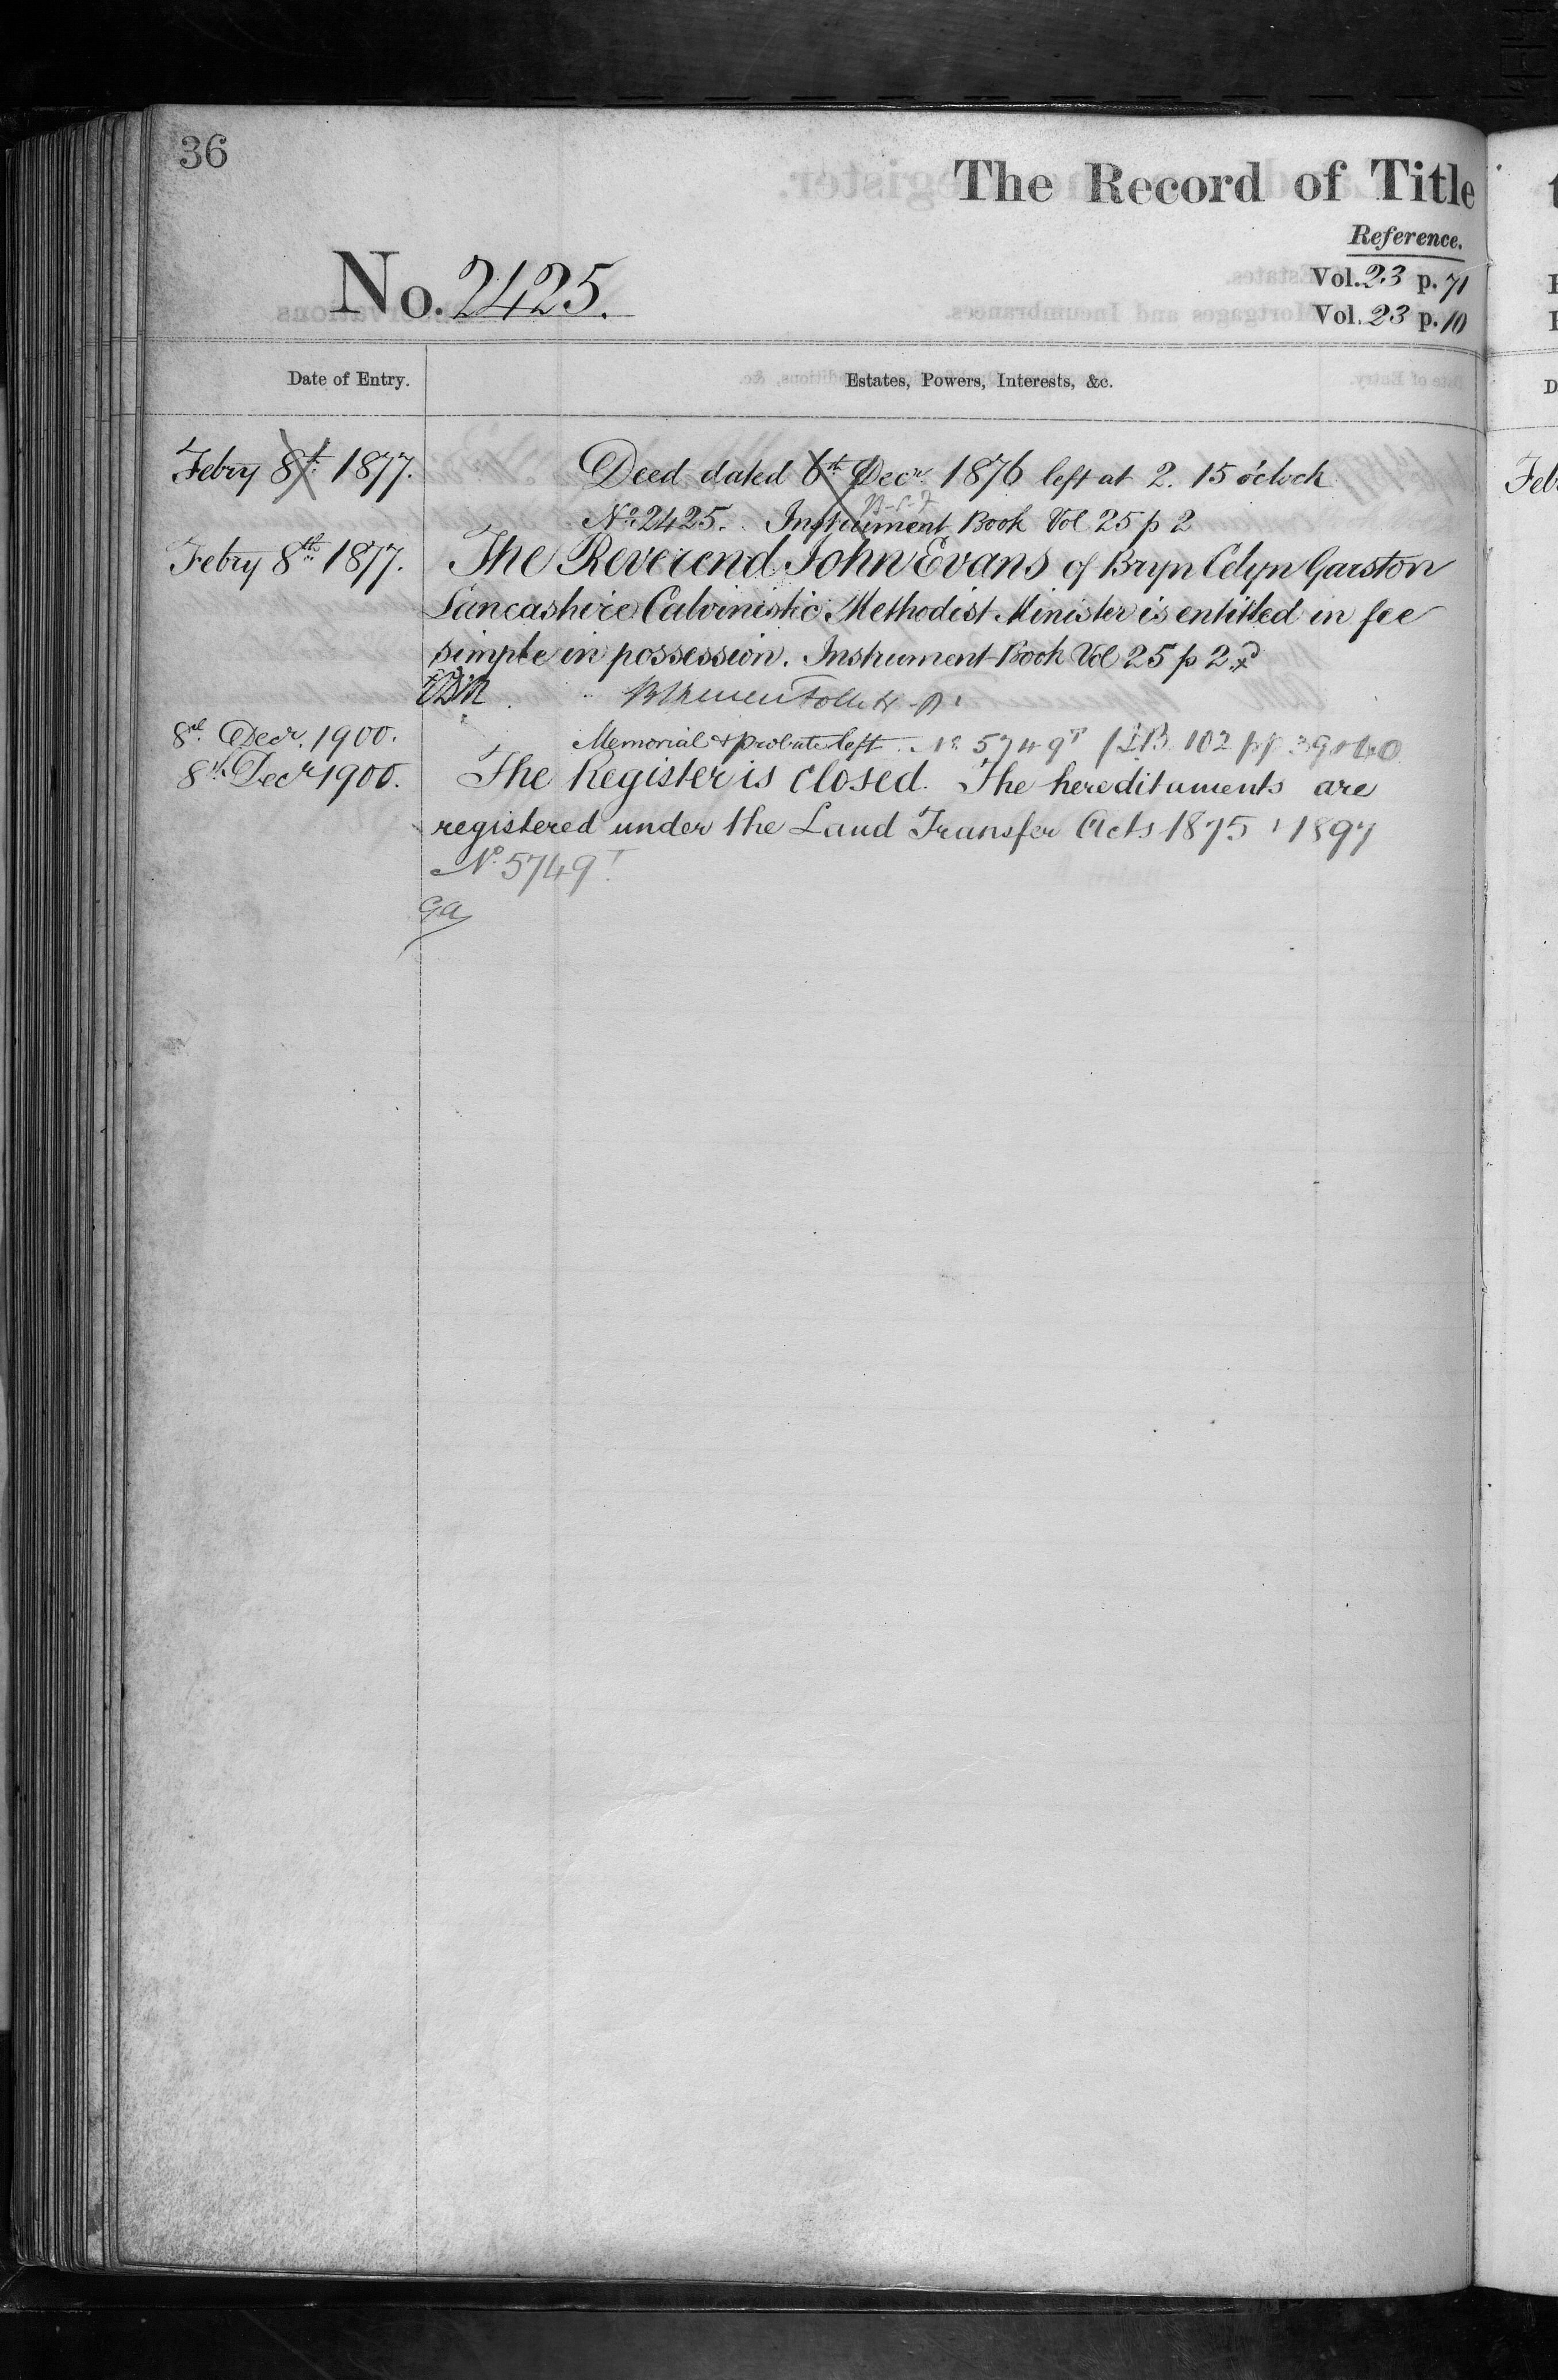 36
The Record of Title
Reference.
No. 2425.
Vol. 23 p. 71
Vol. 23 p. 10
Date of Entry.
Estates, Powers, Interests, &c.
Febry 8th 1877.
Deed dated 6th Decr 1876 left at 2. 15 o'clock
No 2425. Instrument Book Vol 25 p 2
Febry 8th 1877.
The Reverend John Evans of Bryn Celyn Garston
Lancashire Calvinistic Methodist Minister is entitled in fee
simple in possession. Instrument Book Vol 25 p 2
8th Decr. 1900.
Memorial & probate left No 5749T I.B. 102 pp 39 & 40
8th Decr 1900.
The Register is closed. The hereditaments are
registered under the Land Transfer Acts 1875 & 1897
No 5749T